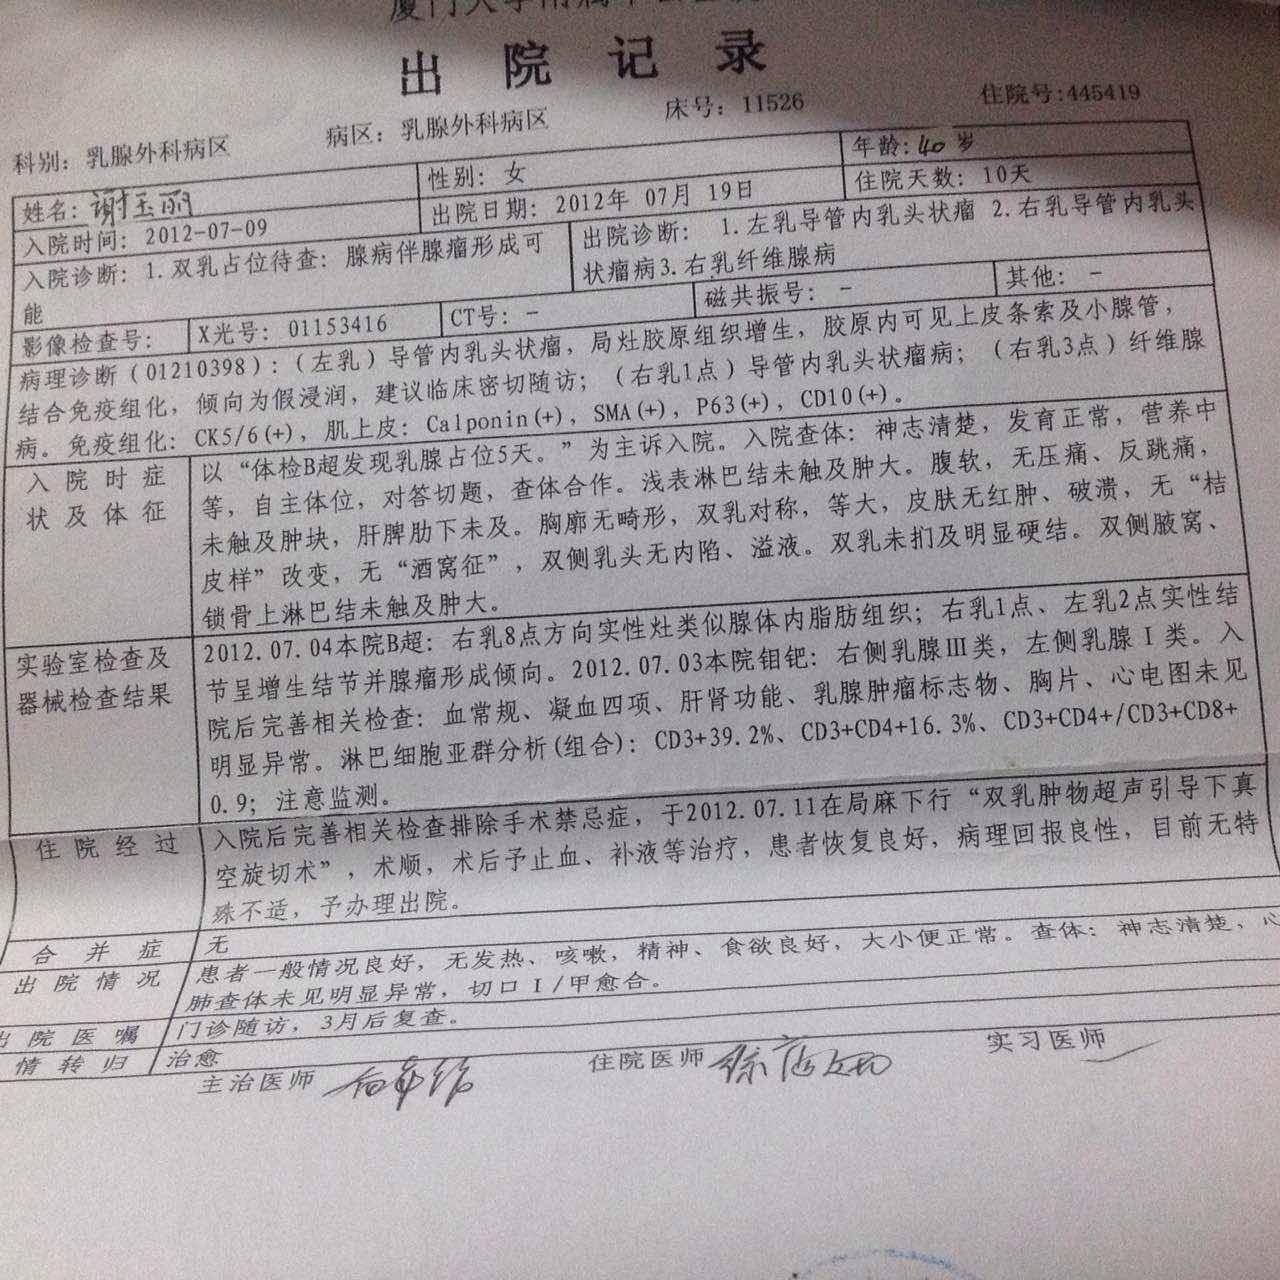 出院记录
科别：乳腺外科病区 病区：乳腺外科病区 床号：11526 住院号:445419
姓名：谢玉丽 性别：女 年龄：40岁
入院时间：2012-07-09 出院日期：2012年 07月 19日 住院天数：10天
入院诊断：1.双乳占位待查：腺病伴腺瘤形成可
能
出院诊断： 1.左乳导管内乳头状瘤 2.右乳导管内乳头
状瘤病3.右乳纤维腺病
影像检查号： X光号：01153416 CT号：- 磁共振号：- 其他：-
病理诊断（01210398）：（左乳）导管内乳头状瘤，局灶胶原组织增生，胶原内可见上皮条索及小腺管，
结合免疫组化，倾向为假浸润，建议临床密切随访；（右乳1点）导管内乳头状瘤病；（右乳3点）纤维腺
病。免疫组化：CK5/6(+)，肌上皮：Calponin(+)，SMA(+)，P63(+)，CD10(+)。
入院时症
状及体征
以“体检B超发现乳腺占位5天。”为主诉入院。入院查体：神志清楚，发育正常，营养中
等，自主体位，对答切题，查体合作。浅表淋巴结未触及肿大。腹软，无压痛、反跳痛，
未触及肿块，肝脾肋下未及。胸廓无畸形，双乳对称，等大，皮肤无红肿、破溃，无“桔
皮样”改变，无“酒窝征”，双侧乳头无内陷、溢液。双乳未扪及明显硬结。双侧腋窝、
锁骨上淋巴结未触及肿大。
实验室检查及
器械检查结果
2012.07.04本院B超：右乳8点方向实性灶类似腺体内脂肪组织；右乳1点、左乳2点实性结
节呈增生结节并腺瘤形成倾向。2012.07.03本院钼钯：右侧乳腺Ⅲ类，左侧乳腺Ⅰ类。入
院后完善相关检查：血常规、凝血四项、肝肾功能、乳腺肿瘤标志物、胸片、心电图未见
明显异常。淋巴细胞亚群分析(组合)：CD3+39.2%、CD3+CD4+16.3%、CD3+CD4+/CD3+CD8+
0.9；注意监测。
住院经过
入院后完善相关检查排除手术禁忌症，于2012.07.11在局麻下行“双乳肿物超声引导下真
空旋切术”，术顺，术后予止血、补液等治疗，患者恢复良好，病理回报良性，目前无特
殊不适，予办理出院。
合并症 无
出院情况 患者一般情况良好，无发热、咳嗽，精神、食欲良好，大小便正常。查体：神志清楚，心
肺查体未见明显异常，切口Ⅰ/甲愈合。
出院医嘱 门诊随访，3月后复查。
情转归 治愈
主治医师 住院医师 实习医师